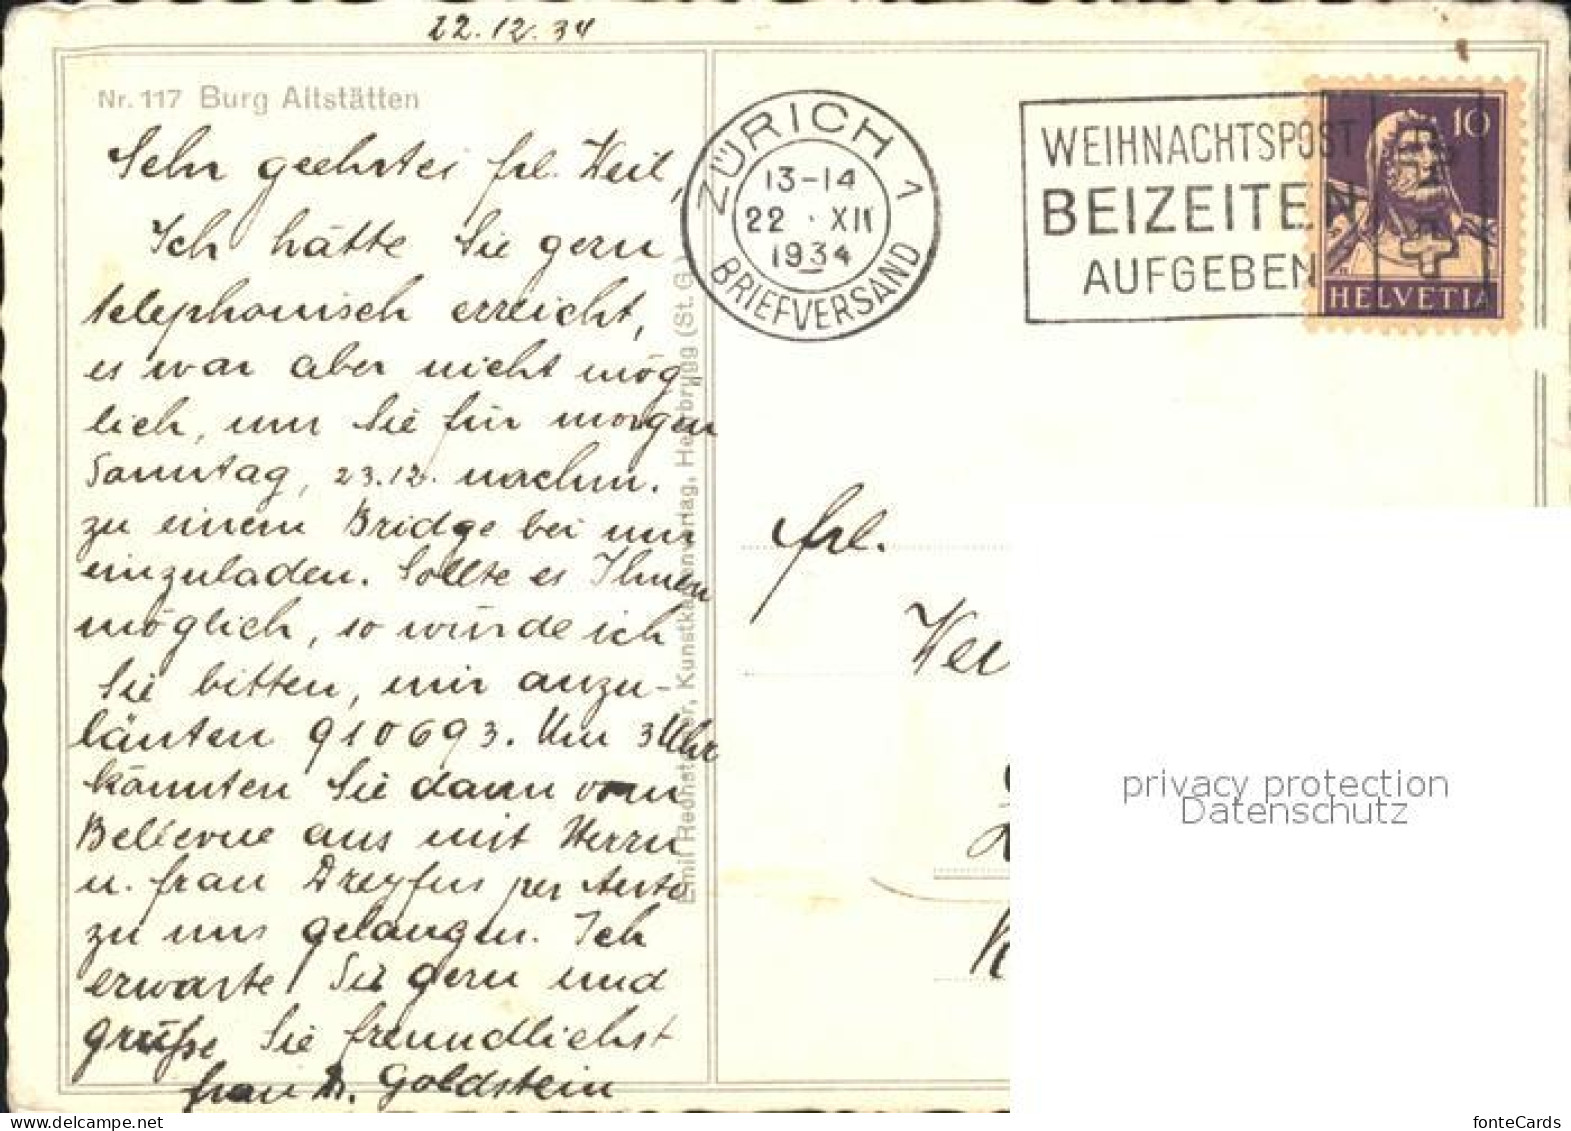 22.12.34
Nr. 117 Burg Altstätten
Sehr geehrtes frl. Weil,
Ich hätte Sie gern
telephonisch erreicht,
es war aber nicht mög
lich, um Sie für morgen
Sonntag, 23.12. nachm.
zu einem Bridge bei uns
einzuladen. Sollte es Ihnen
möglich, so würde ich
Sie bitten, mir anzu-
läuten 910693. Um 3 Uhr
könnten Sie dann vom
Bellevue aus mit Herrn
u. frau Dreyfus per Auto
zu uns gelangen. Ich
erwarte Sie gern und
grüße Sie freundlichst
frau Dr. Goldstein
Kunstkartenverlag, Heerbrugg (St. G.)
ZÜRICH 1
13-14
22 . XII
1934
BRIEFVERSAND
WEIHNACHTSPOST
BEIZEITEN
AUFGEBEN
10
HELVETIA
frl.
privacy protection
Datenschutz
fonteCards